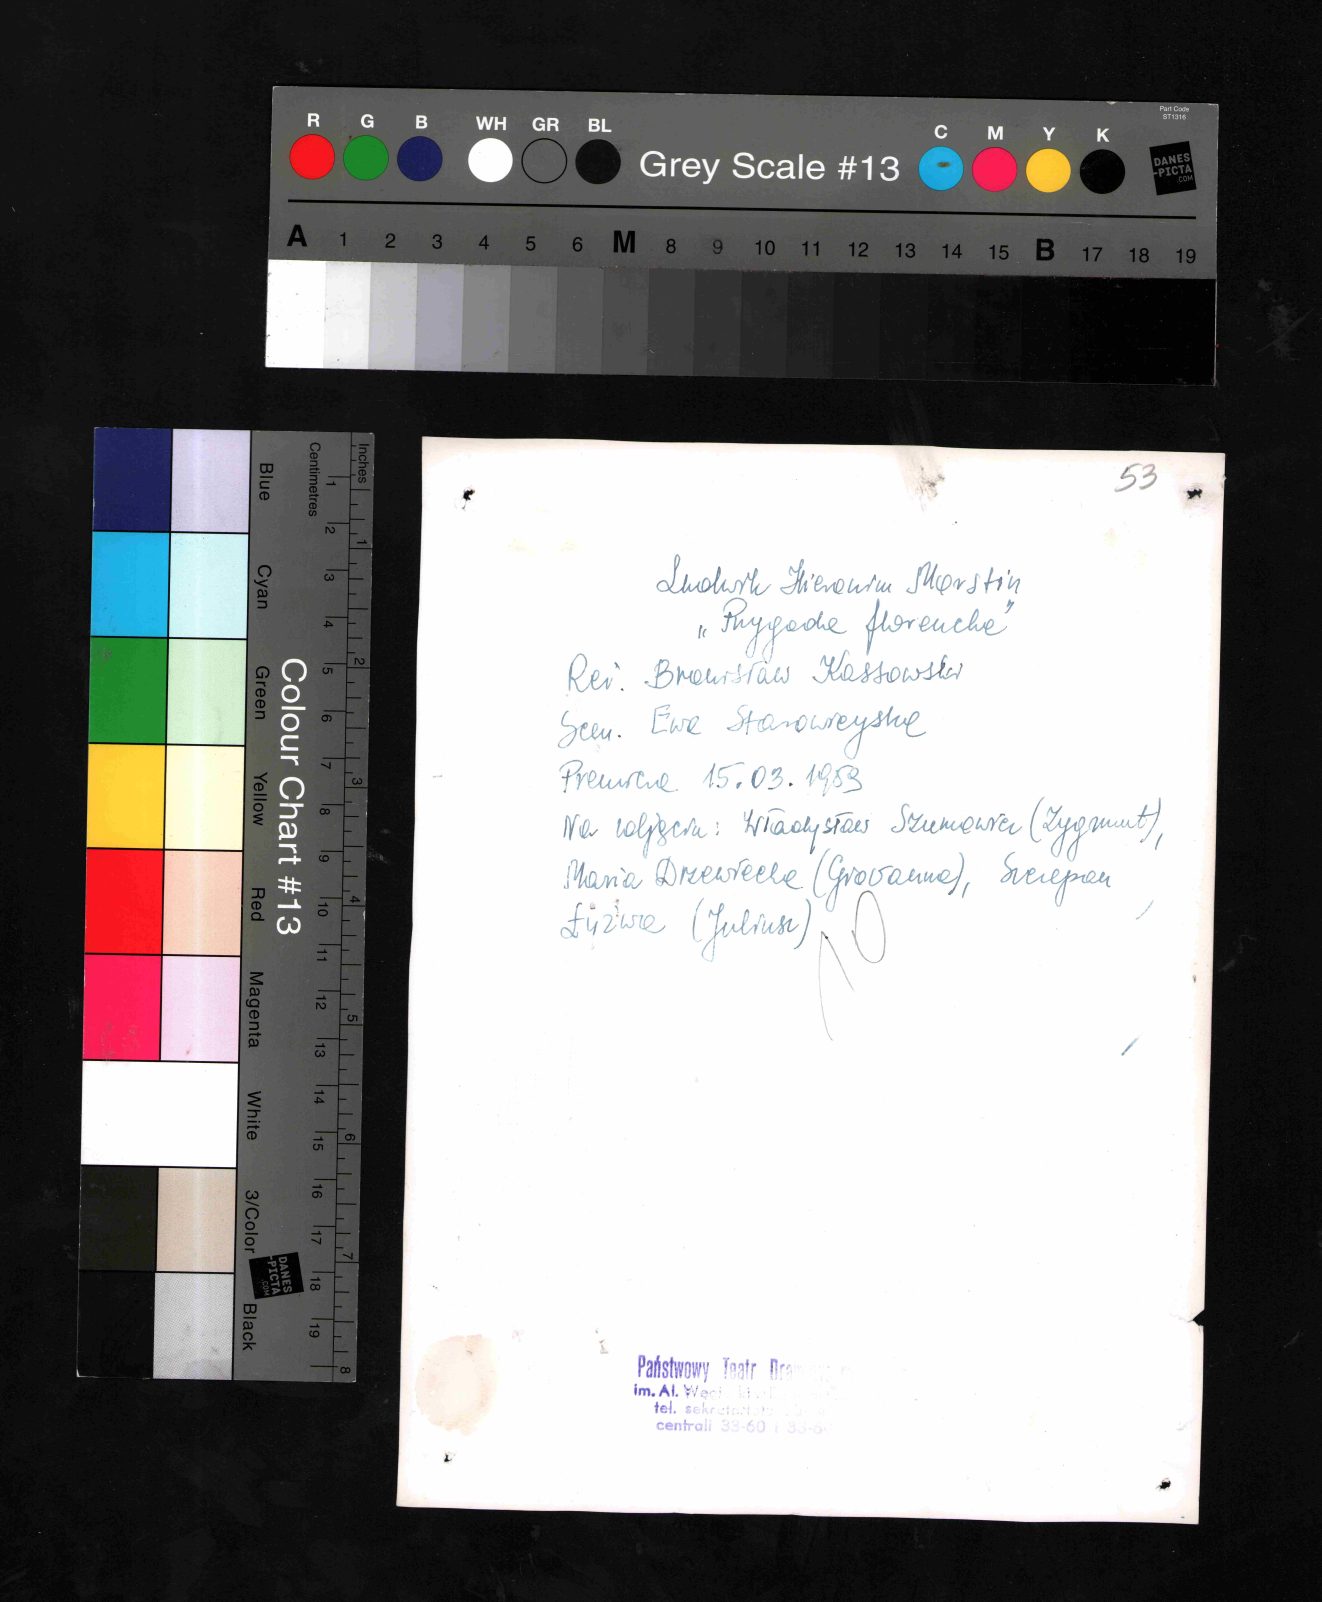 R G B WH GR BL Grey Scale #13 C M Y K
Part Code
ST1316
DANES
-PICTA
.COM
A 1 2 3 4 5 6 M 8 9 10 11 12 13 14 15 B 17 18 19
Colour Chart #13
Blue Cyan Green Yellow Red Magenta White 3/Color Black
Centimetres 1 2 3 4 5 6 7 8 9 10 11 12 13 14 15 16 17 18 19
Inches 1 2 3 4 5 6 7 8
DANES
-PICTA
.COM
53
Ludwik Hieronim Morstin
„Przygoda florencka"
Reż. Bronisław Kassowski
Scen. Ewa Starowieyska
Premiera 15.03.1953
Na zdjęciu: Władysław Szumowicz (Zygmunt),
Maria Drzewiecka (Giovanna), Szczepan
Łyżwa (Juliusz)
Państwowy Teatr
im. Al.
tel.
centrali 33-60 i